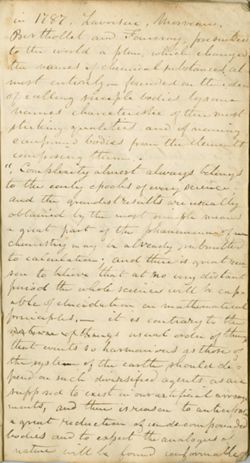 in 1787, Lavoisier, Morveau,
Berthollet and Fourcroy presented
to the world a plan, which changed
the names of chemical substances al
most entirely, founded on the idea
of calling simple bodies by some
names characteristic of their most
striking qualities and of naming
compound bodies from the elements
composing them.
"Complexity almost always belongs
to the early epochs of every science;
and the grandest results are usually
obtained by the most simple means
a great part of the phenomena of
chemistry may be already submitted
to calculation; and there is great rea
son to believe that at no very distant
period the whole science will be cap
able of elucidation on mathematical
principles. — it is contrary to the
usual order of things
that events so harmonious as those of
the system of the earth should de
pend on such diversified agents, as are
supposed to exist in our artificial arrange
ments, and there is reason to anticipate
a great reduction of undecompounded
bodies and to expect the analogies of
nature will be found conformable